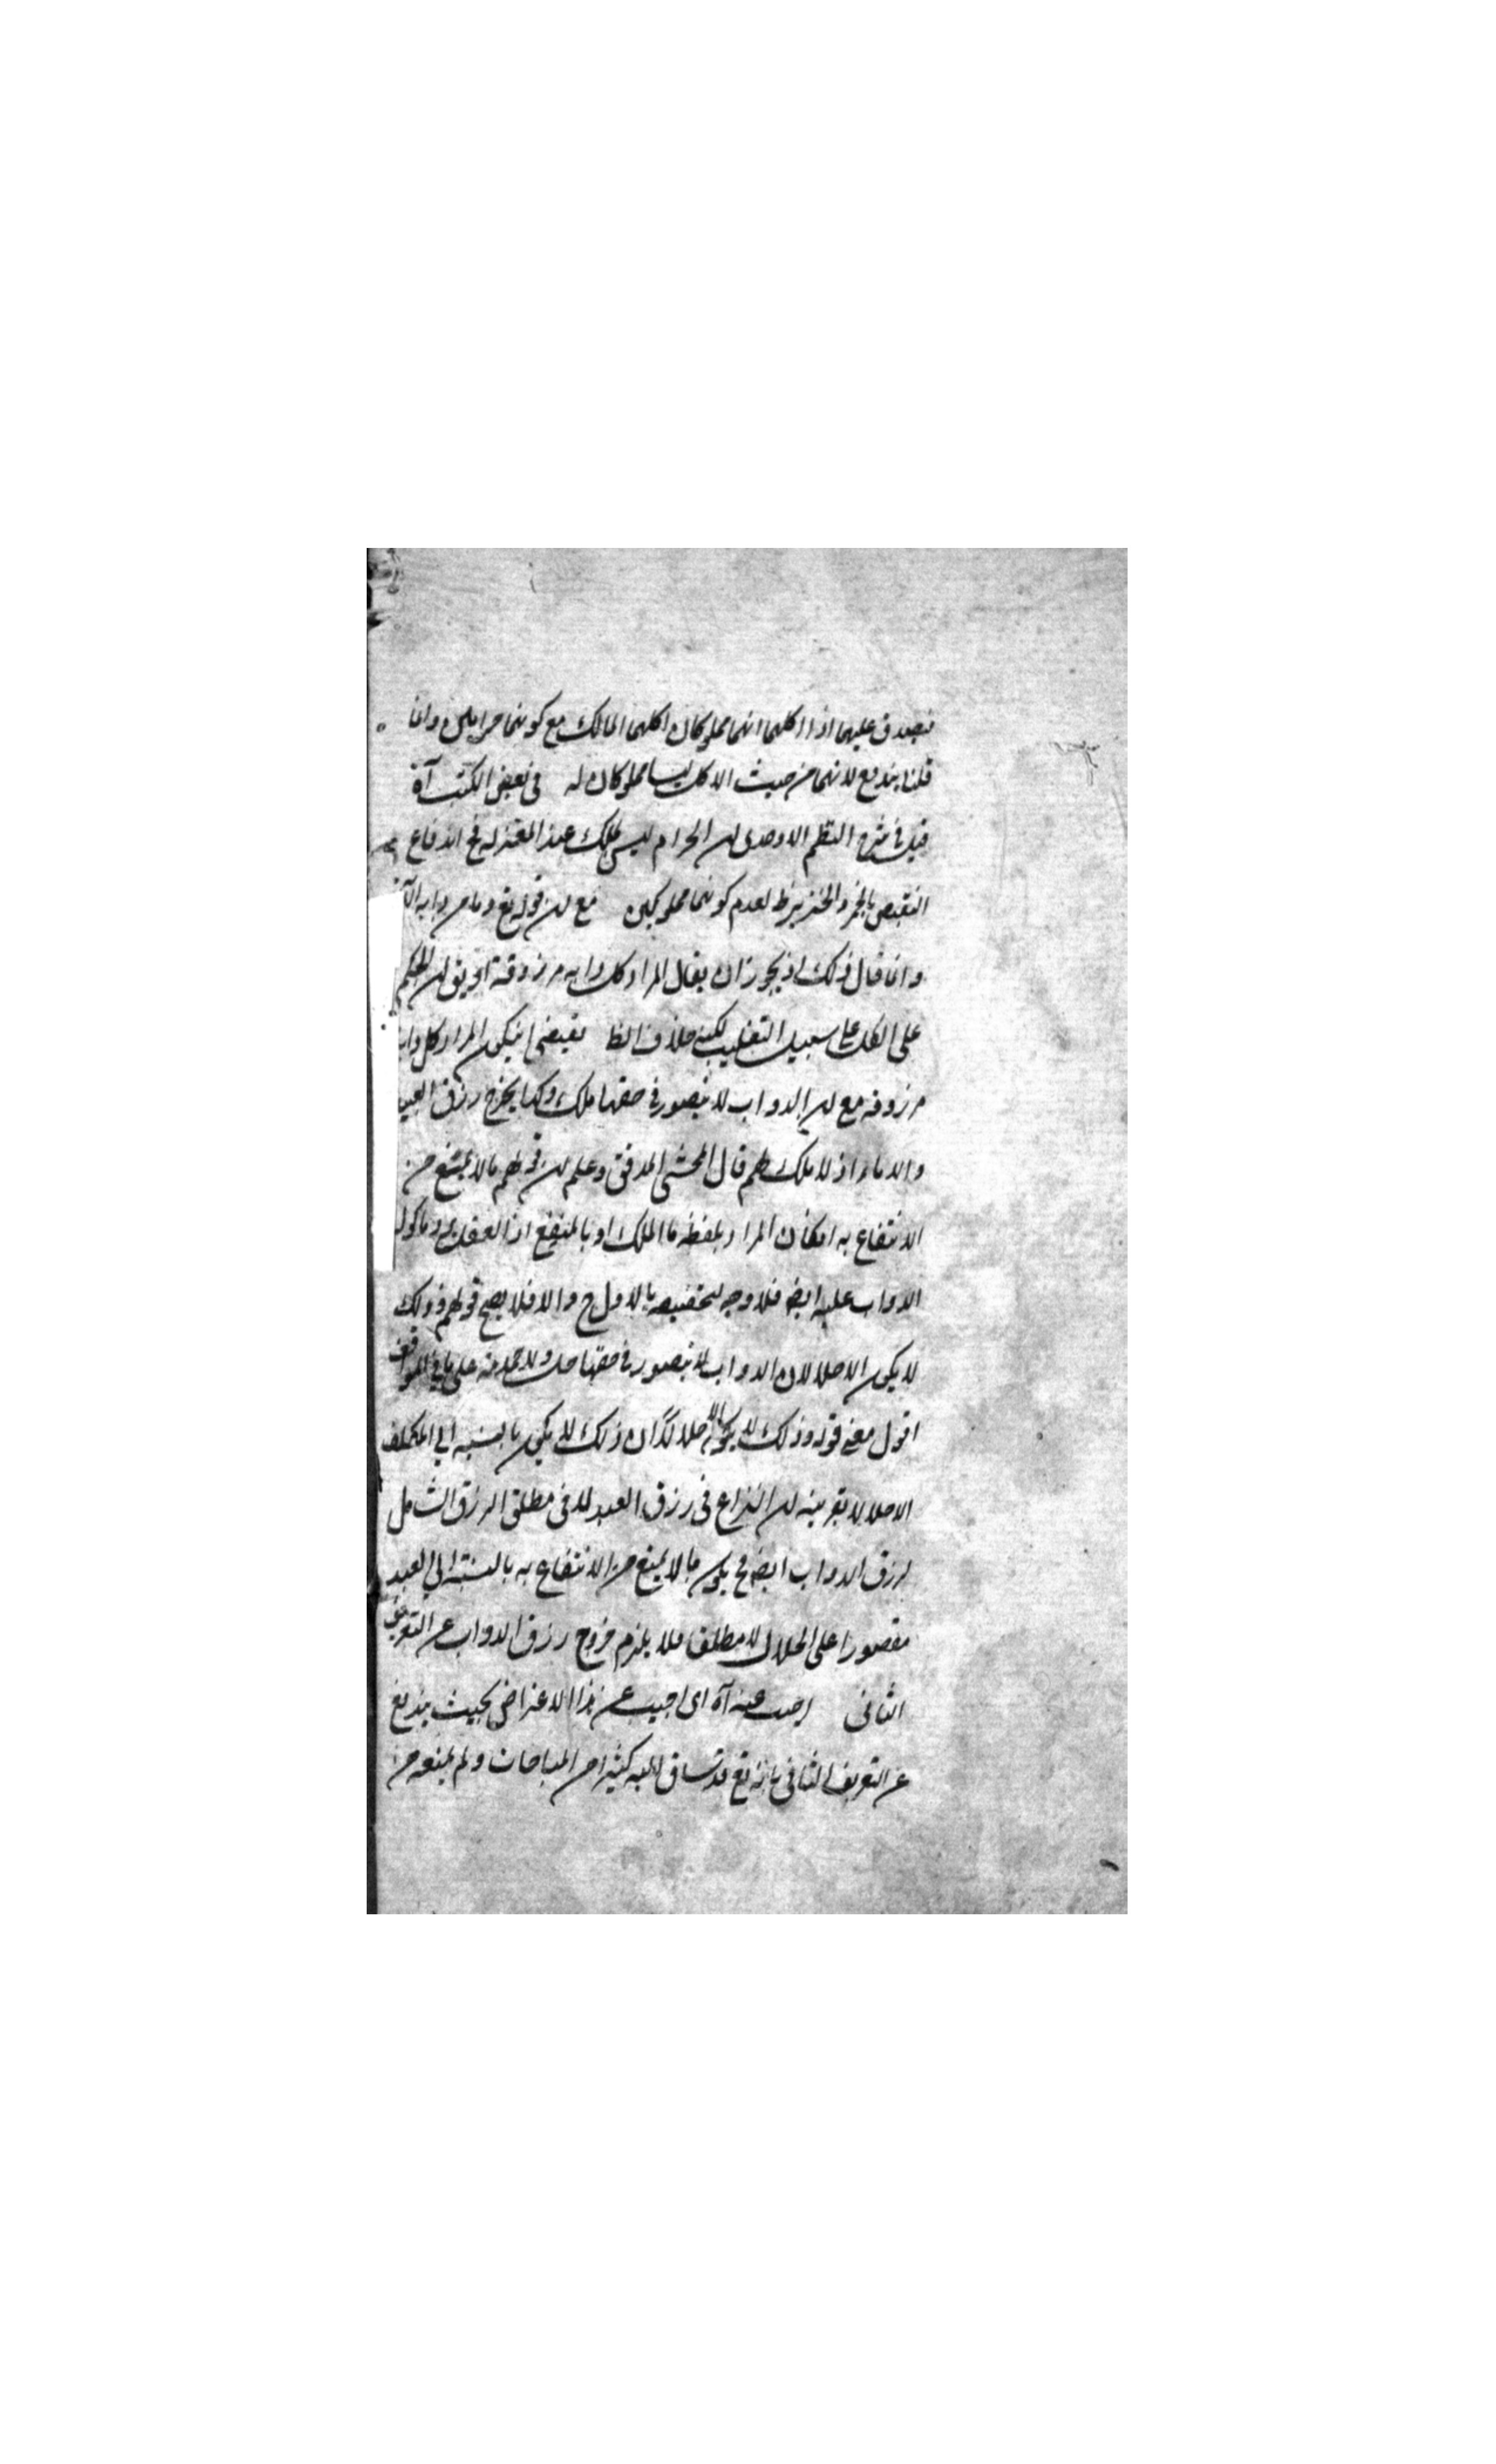 فيصدق عليهما اذا اكلهما انهما مملوكان اكلهما المالك مع كونهما حرامين وانما
قلنا يندفع لانهما من حيث الاكل ليسا مملوكان له في بعض الكتب آه
قيل في شرح النظم الاوحدى ان الحرام ليس بملك عند المعتزلة فح اندفاع
النقيض بالخمر والخنزير ظ لعدم كونهما مملوكين مع ان قوله تع وما من دابة
وانما قال ذلك اذ يجوز ان يقال المراد كل دابة مرزوقة ان الحكم
على الكل على سبيل التغليب لكنه خلاف الظا يقتضى ان يكون المراد كل
مرزوقة مع ان الدواب لا يتصور في حقها ملك وكما يخرج رزق العبيد
والاماء اذ لا ملك لهم قال المحشى المدقق وعلم ان قولهم ما لا يمتنع من
الانتفاع به ان المراد بلفظة ما الملك او بالمنتفع ورد ماكول
الدواب عليه ايض فلا وجه لتخصيصه بالاول ح والا فلا يصح قولهم وذلك
لا يكون الا حلالا لان الدواب لا يتصور في حقها حل ولا حرمة على ما في المواقف
اقول معنى قوله وذلك لا يكون الا حلالا ان ذلك لا يكون بالنسبة الى المكلف
الا حلالا بقرينة ان النزاع في رزق العبد لا في مطلق الرزق الشامل
لرزق الدواب ايض فح يكون ما لا يمنع من الانتفاع به بالنسبة الى العبد
مقصورا على الحلال لا مطلقا فلا يلزم خروج رزق الدواب عن التعريف
الثانى اجيب عنه آه اى اجيب عن هذا الاعتراض بحيث يندفع
عن التعريف الثاني بانه تع قد ساق اليه كثيرا من المباحات ولم يمنعه من